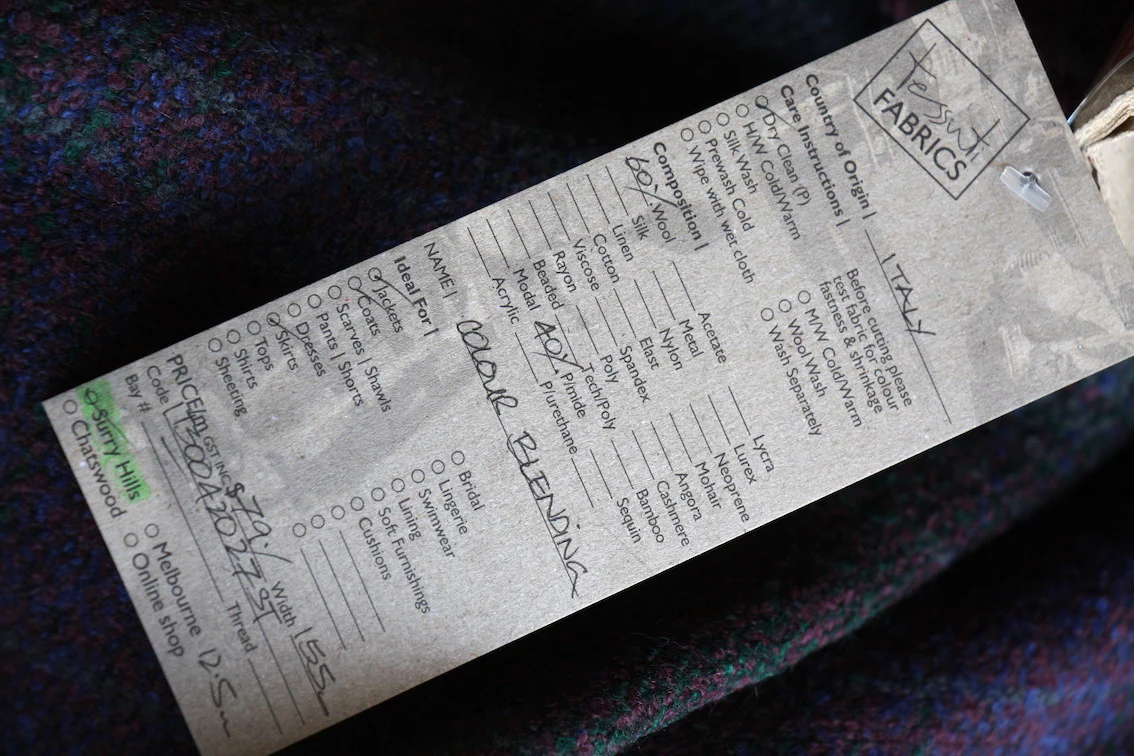 tessuti
FABRICS
Country of Origin | ITALY
Care Instructions |
Dry Clean (P)
H/W Cold/Warm
Silk Wash
Prewash Cold
Wipe with wet cloth
Before cutting please
test fabric for colour
fastness & shrinkage
M/W Cold/Warm
Wool Wash
Wash Separately
Composition |
60% Wool
Silk
Linen
Cotton
Viscose
Rayon
Beaded
Modal
Acrylic
Acetate
Metal
Nylon
Elast
Spandex
Poly
Tech/Poly
40% P/mide
P/urethane
Lycra
Lurex
Neoprene
Mohair
Angora
Cashmere
Bamboo
Sequin
NAME | COLOUR BLENDING
Ideal For |
Jackets
Coats
Scarves | Shawls
Pants | Shorts
Dresses
Skirts
Tops
Shirts
Sheeting
Bridal
Lingerie
Swimwear
Lining
Soft Furnishings
Cushions
PRICE/m GST INC $79./ Width 155
Code
Bay # Thread
Surry Hills
Chatswood
Melbourne 12.5m
Online shop